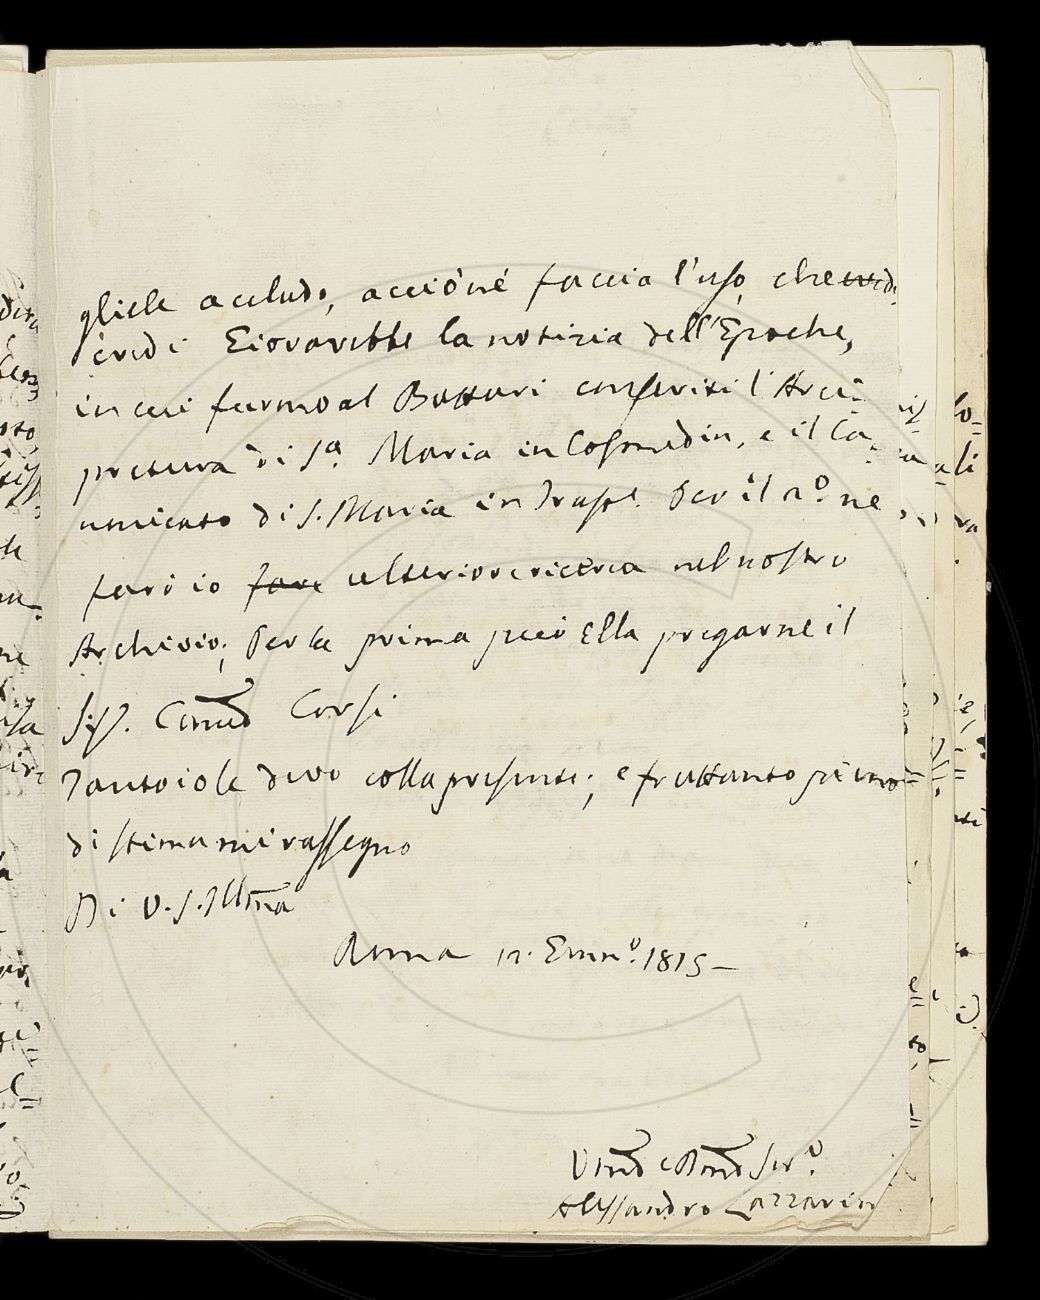 gliele accludo, acciò né faccia l'uso, che
credi Gioverebbe la notizia dell'Epoche,
in cui furono al Bottari conferiti l'Arci=
pretura di S.ª Maria in Cosmedin, e il Ca=
nonicato di S. Maria in Trast.e Per il 2.º ne
farò io fare ulteriore ricerca nel nostro
Archivio; Per la prima può Ella pregarne il
Sig.r Corsi
Tanto io le devo colla presente; e frattanto pieno
di stima mi rassegno
Di V. S. Illma
Roma 12. Genn.º 1815 –
Servº
Alessandro Lazzarini